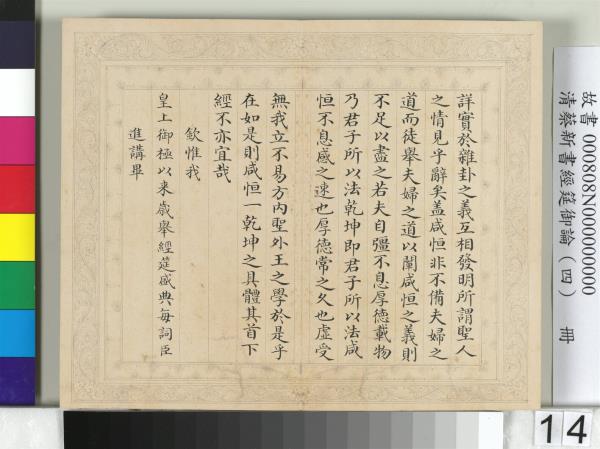 詳實於雜卦之義互相發明所謂聖人
之情見乎辭矣蓋咸恒非不備夫婦之
道而徒舉夫婦之道以闡咸恒之義則
不足以盡之若夫自彊不息厚德載物
乃君子所以法乾坤即君子所以法咸
恒不息感之速也厚德常之久也虛受
無我立不易方內聖外王之學於是乎
在如是則咸恒一乾坤之具體其首下
經不亦宜哉
欽惟我
皇上御極以来歲舉經筵盛典每詞臣
進講畢
故書 000808N000000000
清蔡新書經筵御論（四） 冊
14